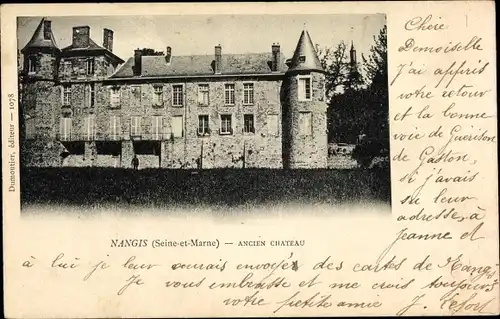 Dumontier, éditeur — 1078
NANGIS (Seine-et-Marne) — ANCIEN CHATEAU
Chère
Demoiselle
J'ai appris
votre retour
et la bonne
voie de Guérison
de Gaston,
si j'avais
su leur
adresse, à
Jeanne et
à lui je leur aurais envoyé des cartes de Nangis,
Je vous embrasse et me crois toujours
votre petite amie J. Lefort